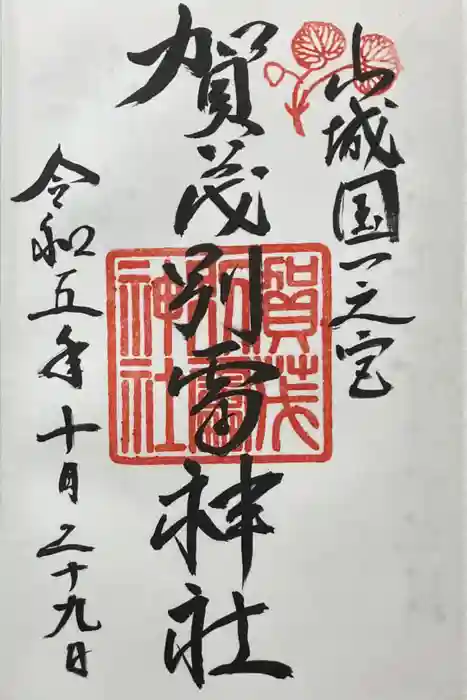 山城国一之宮
賀茂別雷神社
賀茂別雷神社
令和五年十月二十九日